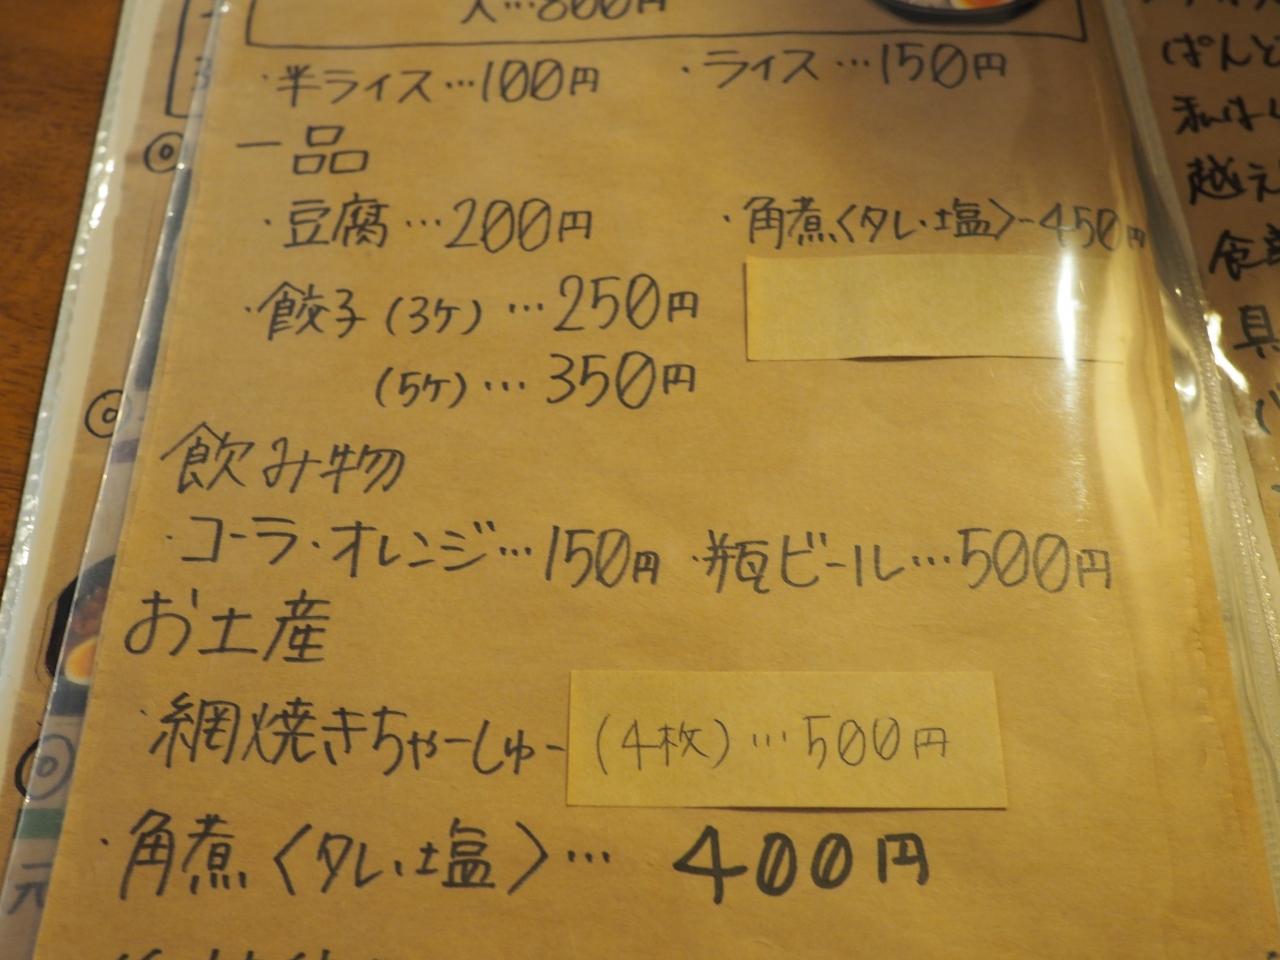 大…800円
・半ライス…100円 ・ライス…150円
一品
・豆腐…200円 ・角煮〈タレ・塩〉…450円
・餃子(3ケ)…250円
(5ケ)…350円
飲み物
・コーラ・オレンジ…150円 ・瓶ビール…500円
お土産
・網焼きちゃーしゅー(4枚)…500円
・角煮〈タレ・塩〉… 400円
ぱんど
私は
越え
食
具
元